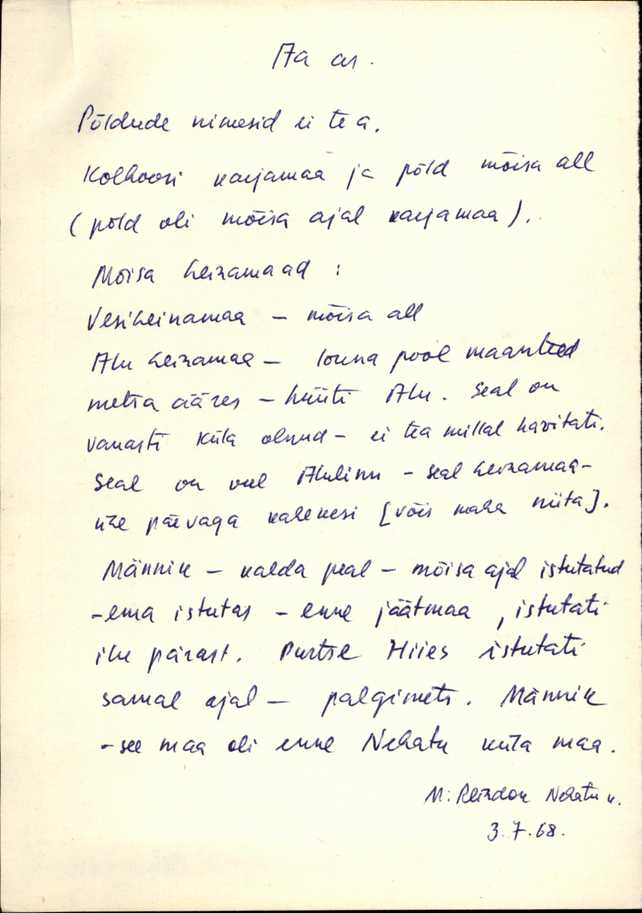 Aa as.
Põldude nimesid ei tea.
Kolhoosi karjamaa ja põld mõisa all
(põld oli mõisa ajal karjamaa).
Mõisa heinamaad :
Vesiheinamaa – mõisa all
Alu heinamaa – louna pool maanteed
metsa ääres – hüüti Alu. Seal on
vanasti küla olnud – ei tea millal hävitati.
Seal on veel Alulinn – seal heinamaa –
ühe päevaga kahekesi [võis maha niita].
Männik – kalda peal – mõisa ajal istutatud
– ema istutas – enne jäätmaa, istutati
ilu pärast. Purtse Hiies istutati
samal ajal – palgimets. Männik
– see maa oli enne Nehatu küla maa.
M. Nehatu k.
3.7.68.